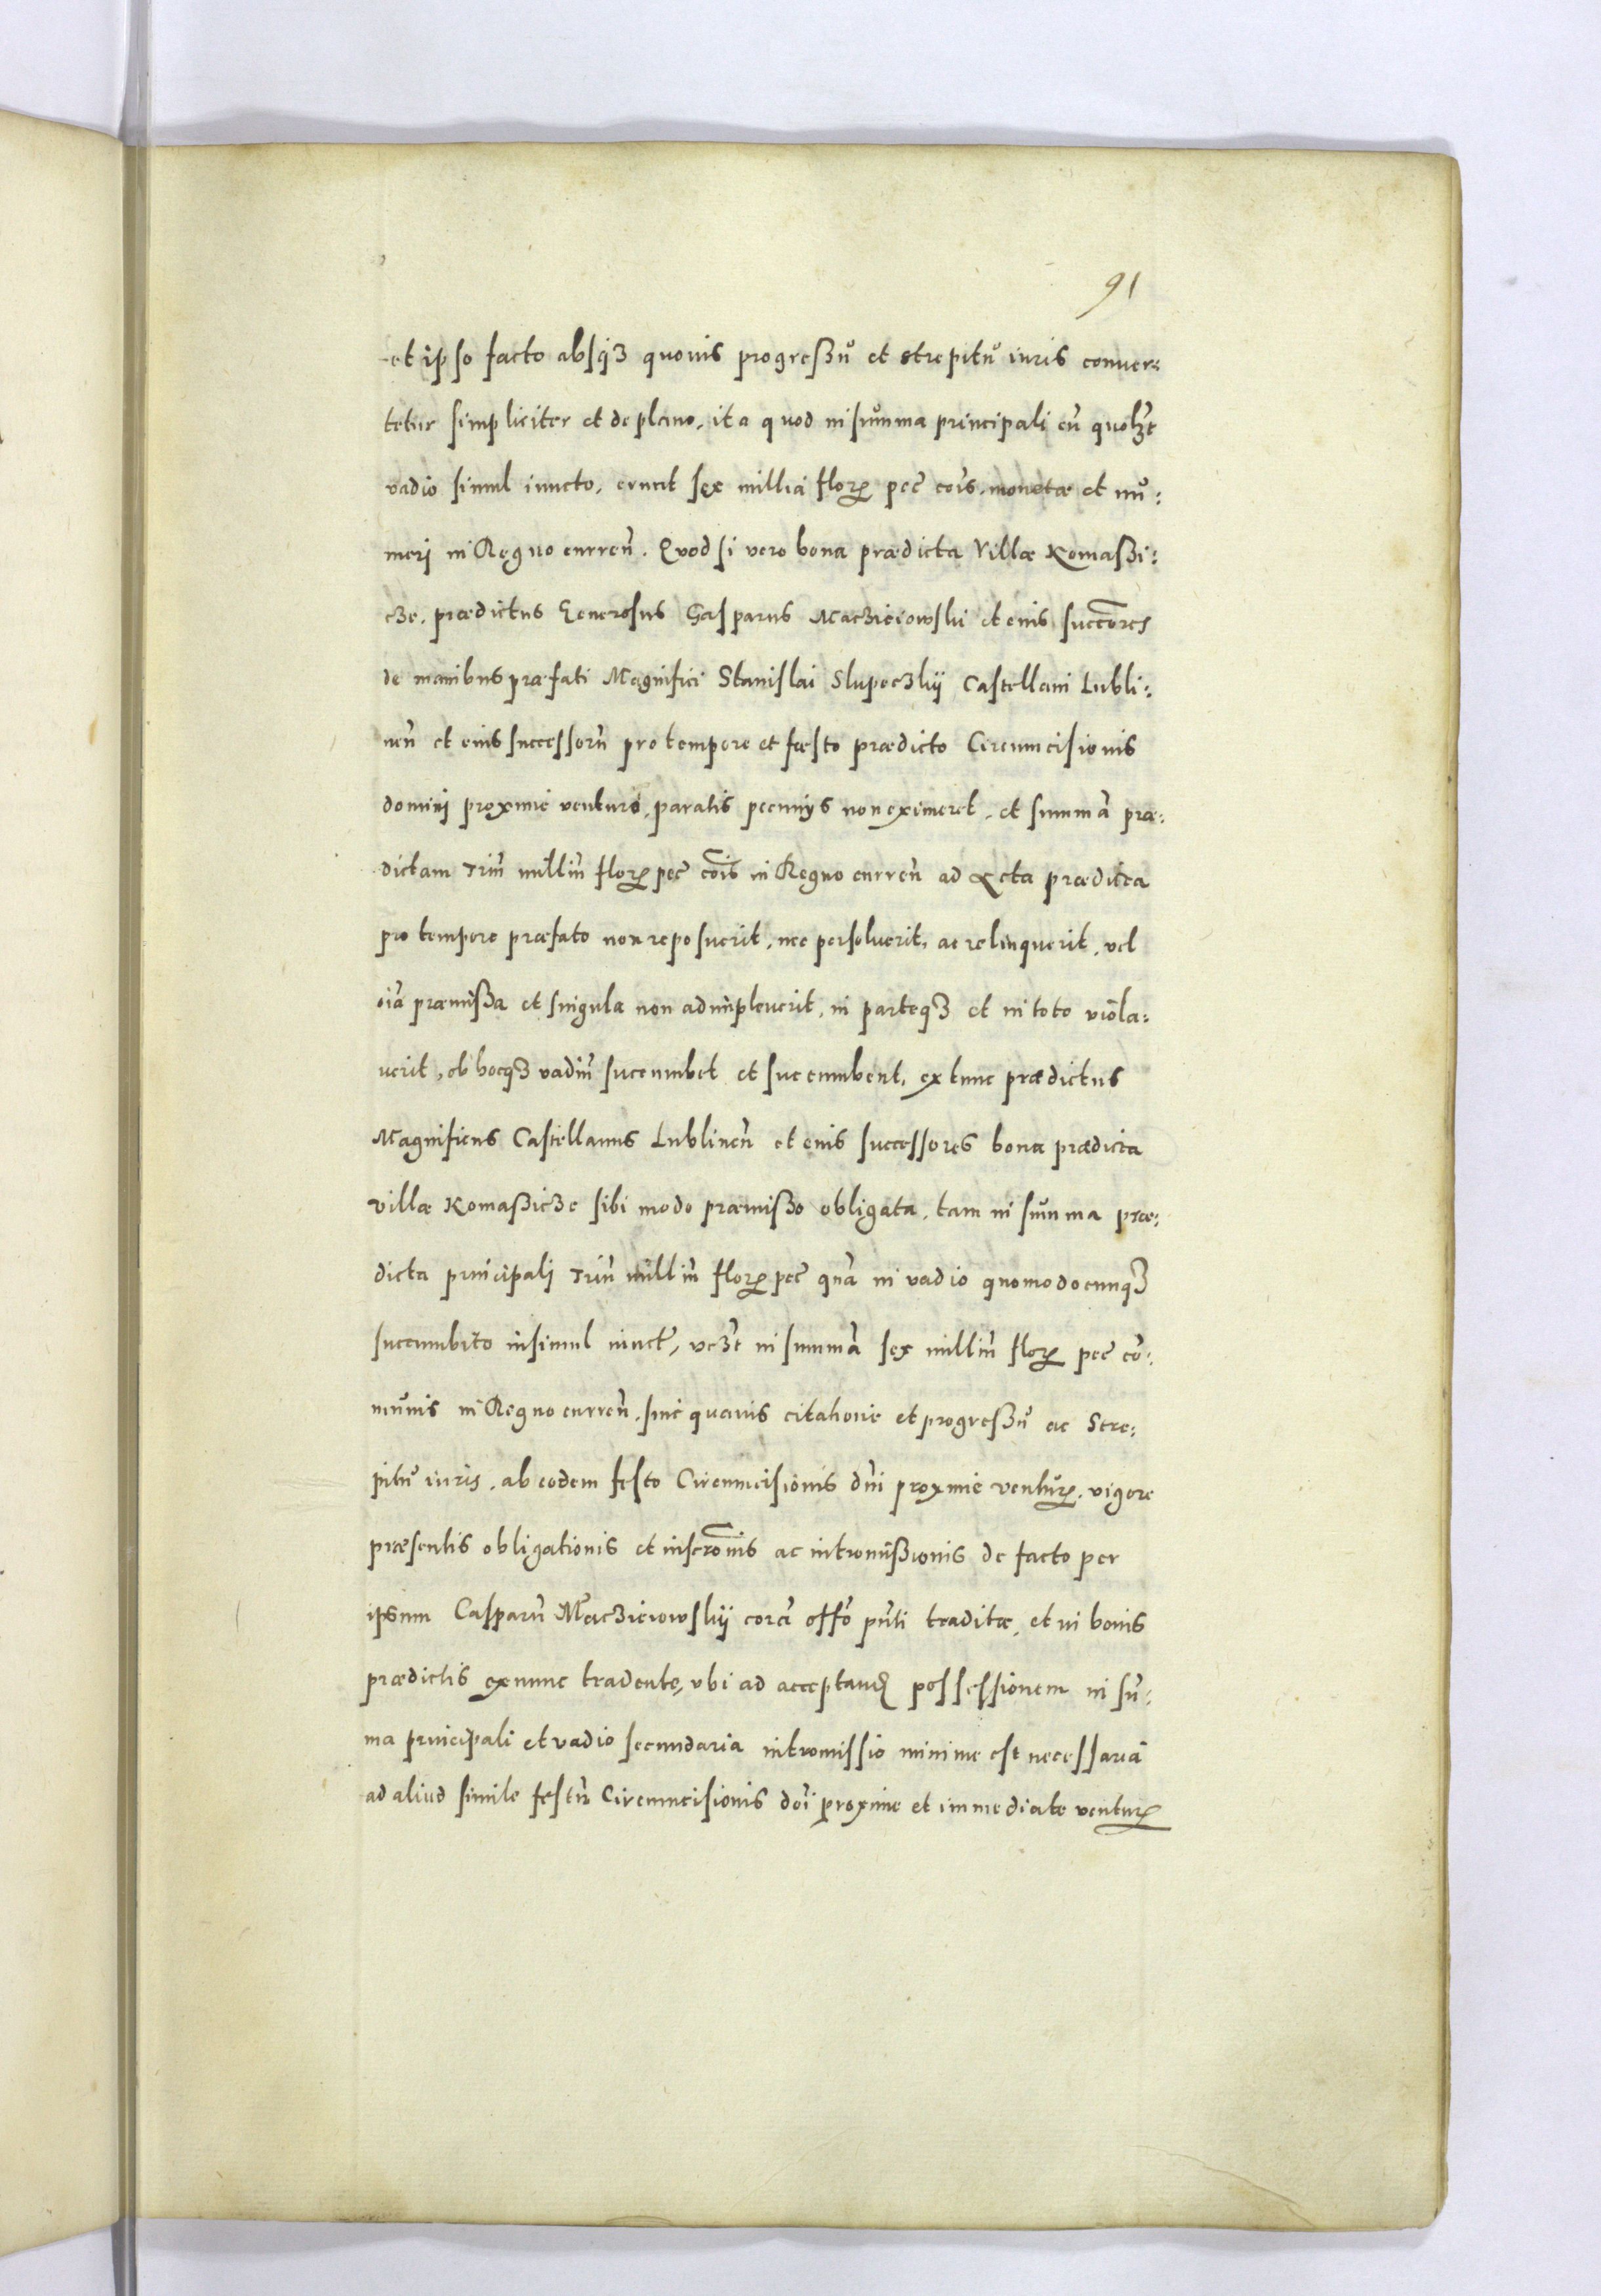 91
et ipso facto absq₃ quouis progreßu et strepitu iuris conuer:
tetur simpliciter et de plano, ita quod in sum̃ma principali cũ quolꝫt
vadio simul iuncto, erunt sex millia floꝝ pec̃ cõis, monetæ et nu:
meri in Regno curreñ. Quod si vero bona prædicta Villæ Komaßi:
cze, prædictus Generosus Gasparus Macziciowski et eius succẽores
de manibus præfati Magnifici Stanislai Slupeczkij Castellani Lubli:
neñ et eius successorũ pro tempore et fæsto prædicto Circumcisionis
domini proxime venturo, paratis pecunijs non eximeret, et summã præ:
dictam triũ milliũ floꝝ pec̃ cõis in Regno curreñ ad Acta prædicta
pro tempore præfato non reposuerit, nec persoluerit, ac relinquerit, vel
oĩa præmißa et singula non adimpleuerit, in parteq₃ et in toto viola:
uerit, ob hocq₃ vadiũ succumbet et succumbent, ex tunc prædictus
Magnificus Castellanus Lublineñ et eius successores bona prædicta
villæ Komaßicze sibi modo præmißo obligata, tam in sum̃ma præ:
dicta principali triũ milliũ floꝝ pec̃ quã in vadio quomodocunq₃
succumbito insimul iunct̃, vcꝫt in summã sex milliũ floꝝ pec̃ cõ:
munis in Regno curreñ, sine quauis citatione et progreßu ac Stre:
pitu iuris, ab eodem festo Circumcisionis dñi proxime ventuꝝ, vigore
præsentis obligationis et inscrõnis ac intromißionis de facto per
ipsum Casparũ Macziciowskij corã offõ pñti traditæ, et in bonis
prædictis ex nunc tradente, vbi ad acceptand possessionem in sũ:
ma principali et vadio secundaria intromissio minime est necessaria
ad aliud simile festũ Circumcisionis dõi proxime et immediate ventuꝝ